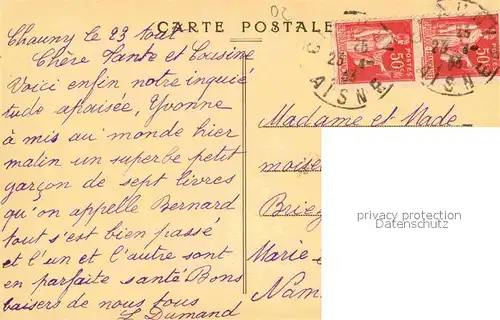 CARTE POSTALE
20
Chauny le 23 Août
Chère Tante et Cousine
Voici enfin notre inquié
tude apaisée, Yvonne
à mis au monde hier
matin un superbe petit
garçon de sept livres
qu'on appelle Bernard
tout s'est bien passé
et l'un et l'autre sont
en parfaite santé Bons
baisers de nous tous
L Dumand
50c
50c
AISNE
AISNE
Madame et Made-
mois
Brie
Marie-
Nam
privacy protection
Datenschutz